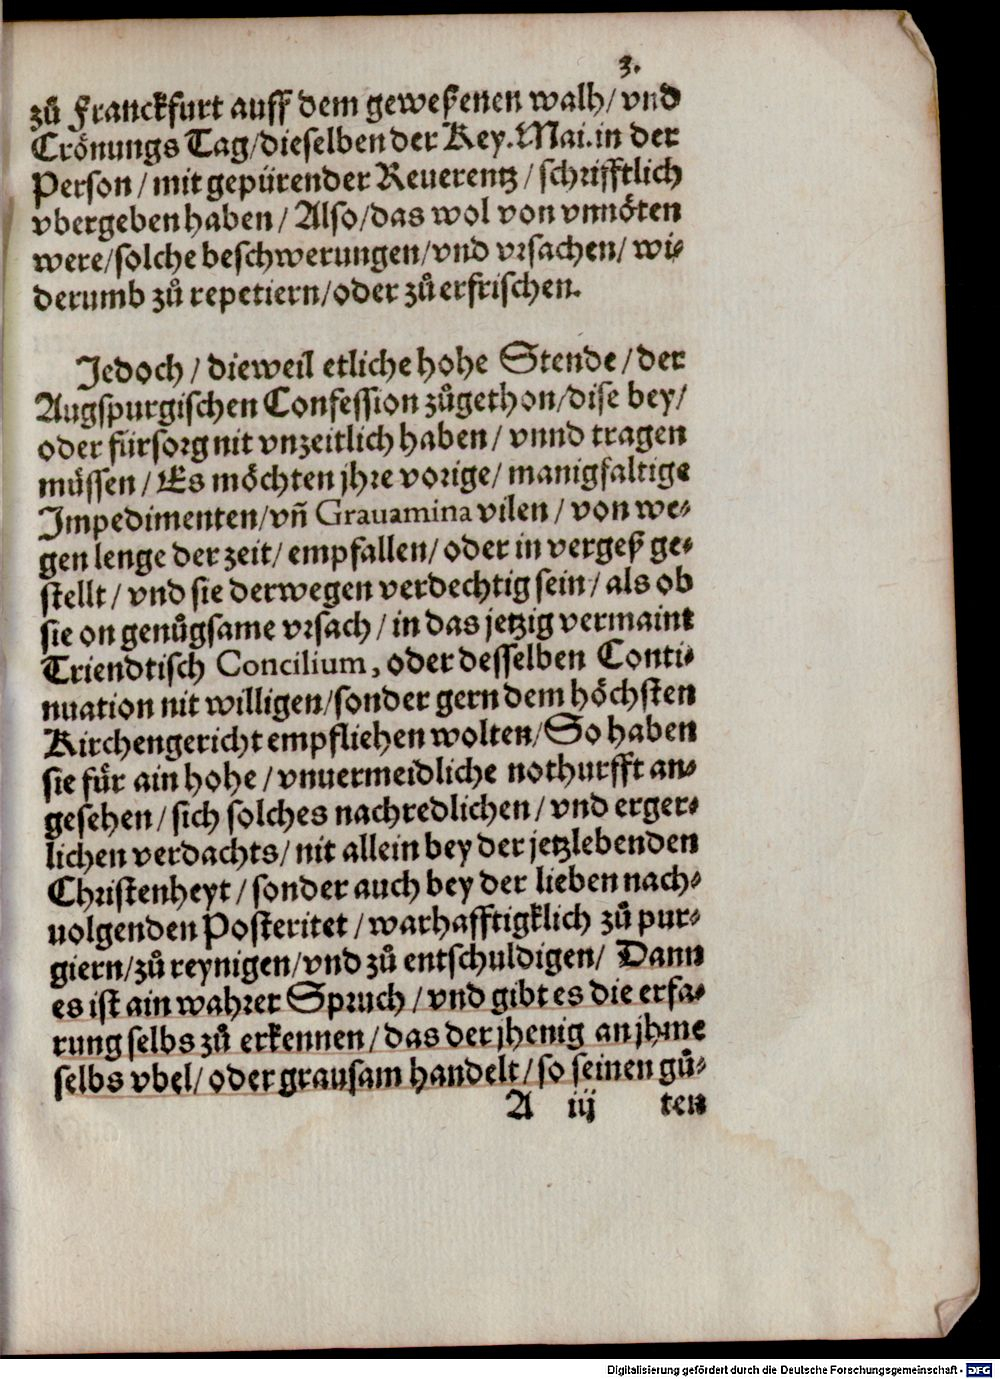 3.
zů Franckfurt auff dem geweßenen walh/ vnd
Crönungs Tag/dieselben der Key. Mai. in der
Person / mit gepürender Reuerentz / schrifftlich
vbergeben haben / Also/das wol von vnnöten
were/solche beschwerungen/vnd vrsachen/ wi-
derumb zů repetiern/oder zů erfrischen.
Jedoch / dieweil etliche hohe Stende / der
Augspurgischen Confession zůgethon/dise bey/
oder fürsorg nit vnzeitlich haben/ vnnd tragen
müssen / Es möchten jhre vorige/ manigfaltige
Impedimenten/vñ Grauamina vilen / von we-
gen lenge der zeit/ empfallen/ oder in vergeß ge-
stellt / vnd sie derwegen verdechtig sein / als ob
sie on genůgsame vrsach / in das jetzig vermaint
Triendtisch Concilium, oder desselben Conti-
nuation nit willigen/sonder gern dem höchsten
Kirchengericht empfliehen wolten/So haben
sie für ain hohe / vnuermeidliche nothurfft an-
gesehen / sich solches nachredlichen / vnd erger-
lichen verdachts/ nit allein bey der jetzlebenden
Christenheyt / sonder auch bey der lieben nach-
uolgenden Posteritet / warhafftigklich zů pur-
giern/zů reynigen/vnd zů entschuldigen/ Dann
es ist ain wahrer Spruch / vnd gibt es die erfa-
rung selbs zů erkennen / das der jhenig an jhme
selbs vbel/ oder grausam handelt / so seinen gů-
A iij ten
Digitalisierung gefördert durch die Deutsche Forschungsgemeinschaft - DFG